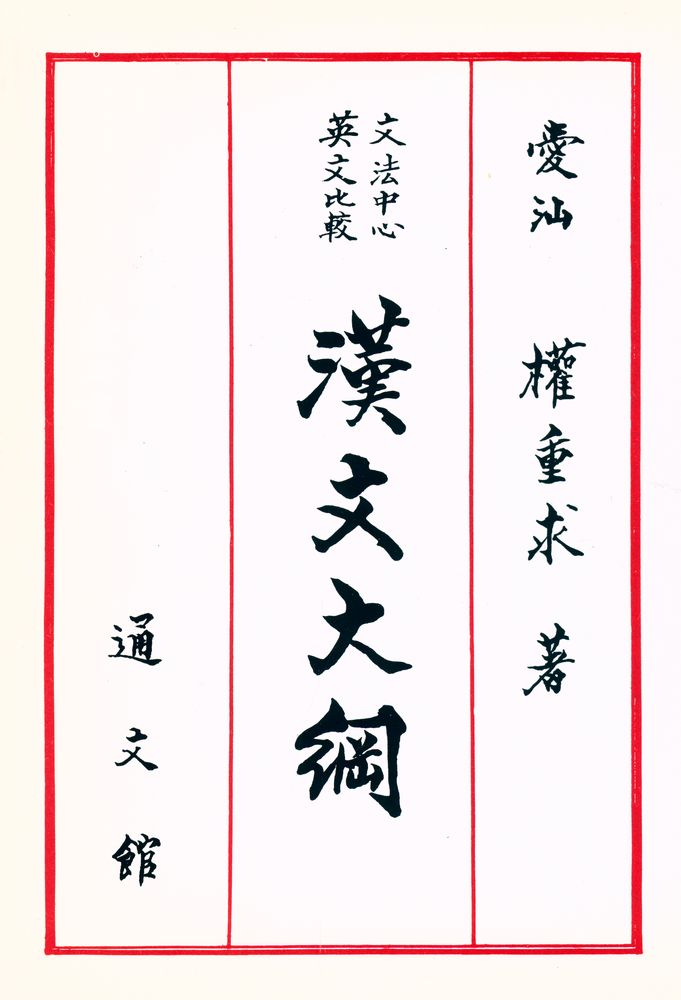 愛汕 權重求 著
文法中心
英文比較
漢文大綱
通文館